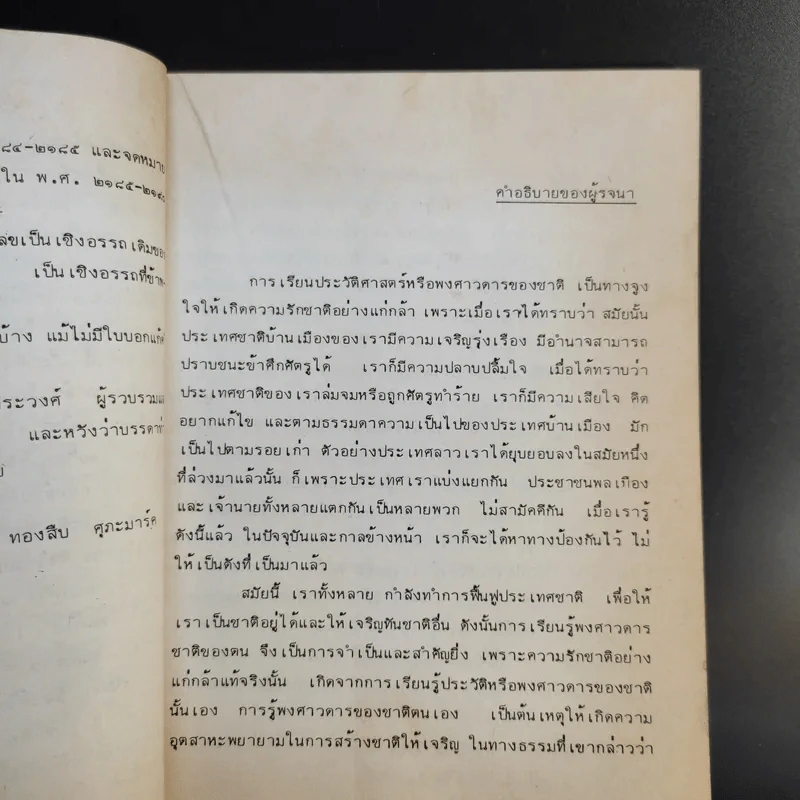 ๘๔-๒๑๘๕ และจดหมาย
ใน พ.ศ. ๒๑๘๕-๒๑๙๐
เลขเป็นเชิงอรรถเดิมของ
เป็นเชิงอรรถที่ข้าพ
บ้าง แม้ไม่มีใบบอกแก้
ระวงศ์ ผู้รวบรวมแ
และหวังว่าบรรดา
ทองสืบ ศุภะมาร์ค
คำอธิบายของผู้รจนา
การเรียนประวัติศาสตร์หรือพงศาวดารของชาติ เป็นทางจูง
ใจให้เกิดความรักชาติอย่างแก่กล้า เพราะเมื่อเราได้ทราบว่า สมัยนั้น
ประเทศชาติบ้านเมืองของเรามีความเจริญรุ่งเรือง มีอำนาจสามารถ
ปราบชนะข้าศึกศัตรูได้ เราก็มีความปลาบปลื้มใจ เมื่อได้ทราบว่า
ประเทศชาติของเราล่มจมหรือถูกศัตรูทำร้าย เราก็มีความเสียใจ คิด
อยากแก้ไข และตามธรรมดาความเป็นไปของประเทศบ้านเมือง มัก
เป็นไปตามรอยเก่า ตัวอย่างประเทศลาวเราได้ยุบยอบลงในสมัยหนึ่ง
ที่ล่วงมาแล้วนั้น ก็เพราะประเทศเราแบ่งแยกกัน ประชาชนพลเมือง
และเจ้านายทั้งหลายแตกกันเป็นหลายพวก ไม่สามัคคีกัน เมื่อเรารู้
ดังนี้แล้ว ในปัจจุบันและกาลข้างหน้า เราก็จะได้หาทางป้องกันไว้ ไม่
ให้เป็นดังที่เป็นมาแล้ว
สมัยนี้ เราทั้งหลาย กำลังทำการฟื้นฟูประเทศชาติ เพื่อให้
เราเป็นชาติอยู่ได้และให้เจริญทันชาติอื่น ดังนั้นการเรียนรู้พงศาวดาร
ชาติของตน จึงเป็นการจำเป็นและสำคัญยิ่ง เพราะความรักชาติอย่าง
แก่กล้าแท้จริงนั้น เกิดจากการเรียนรู้ประวัติหรือพงศาวดารของชาติ
นั้นเอง การรู้พงศาวดารของชาติตนเอง เป็นต้นเหตุให้เกิดความ
อุตสาหะพยายามในการสร้างชาติให้เจริญ ในทางธรรมที่เขากล่าวว่า